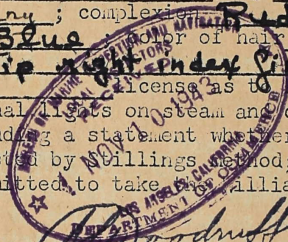 ny ; complexion Rud
Blue or of hair
ip right index fi
license as to
nal lights on steam and o
ding a statement whether
ted by Stillings method,
mitted to take Willia
BUREAU OF MARINE INSPECTION AND NAVIGATION
LOCAL INSPECTORS
RECEIVED
NOV 10 1943
LOS ANGELES, CALIFORNIA
DEPARTMENT OF COMMERCE
Woodruff